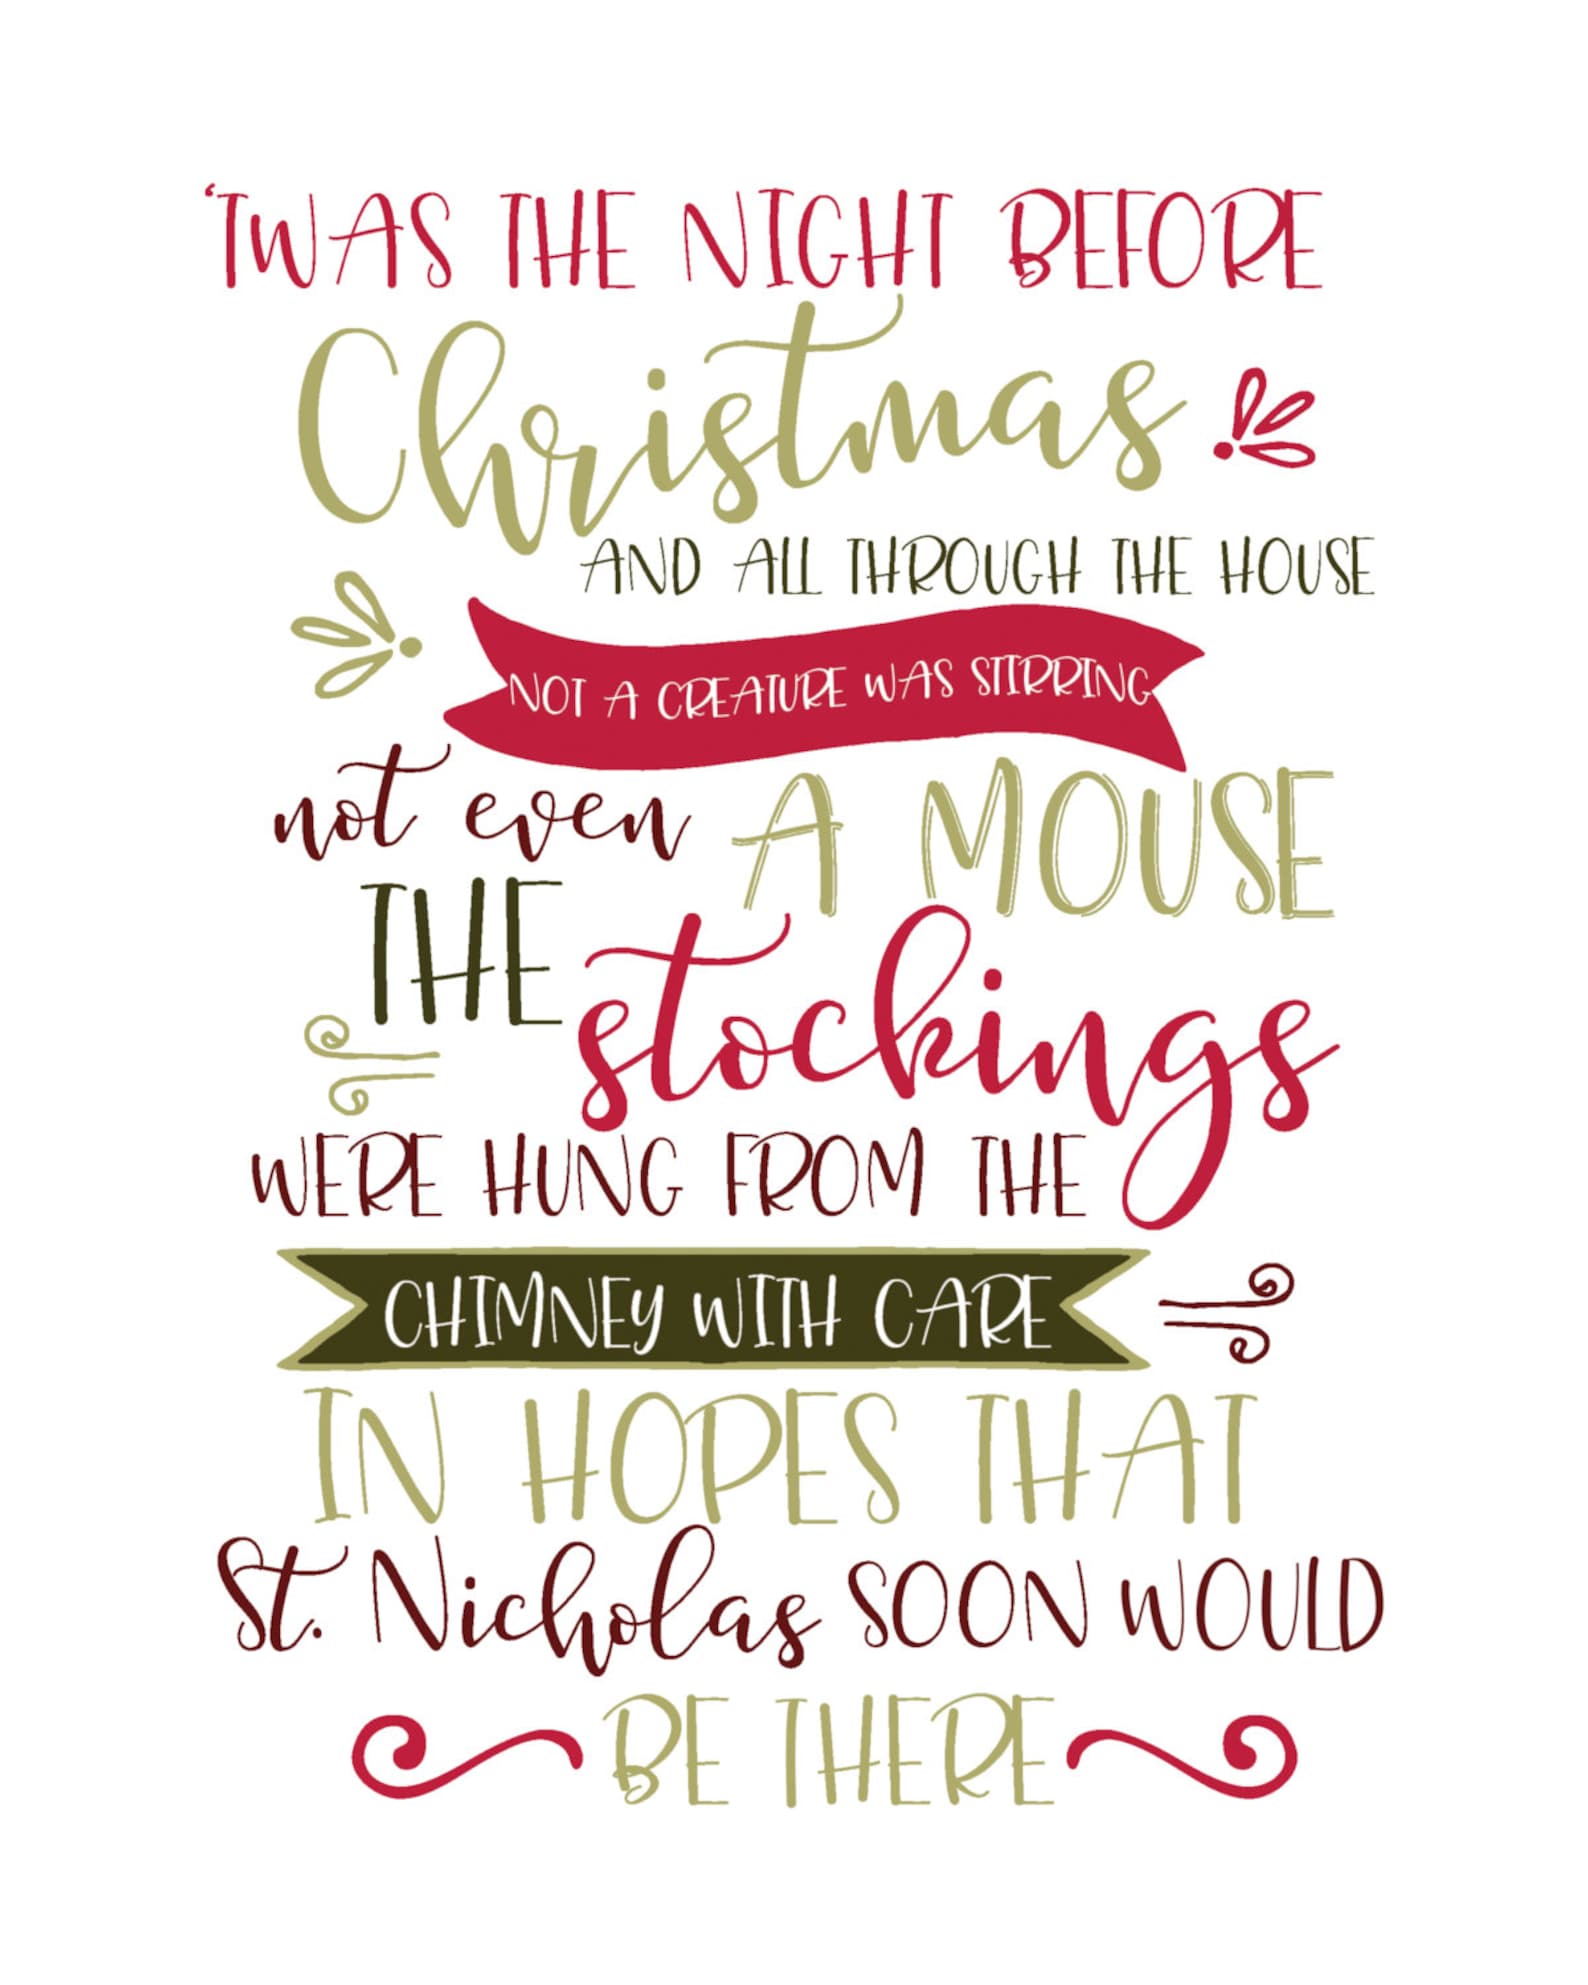 ‘TWAS THE NIGHT BEFORE
Christmas
AND ALL THROUGH THE HOUSE
NOT A CREATURE WAS STIRRING
not even A MOUSE
THE stockings
WERE HUNG FROM THE
CHIMNEY WITH CARE
IN HOPES THAT
St. Nicholas SOON WOULD
BE THERE